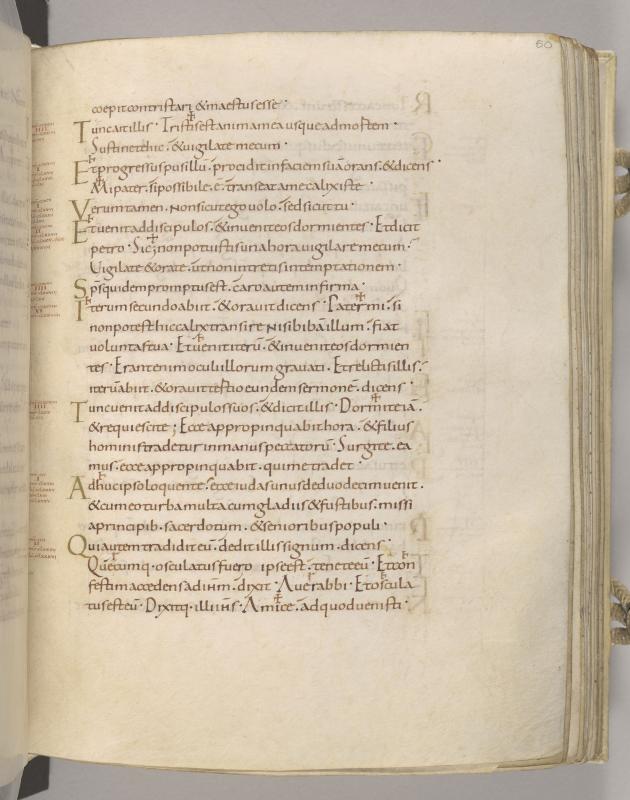 60
coepit contristari & maestus esse ·
Tunc ait illis · Tristis est anima mea usque ad mortem ·
Sustinete hic · & uigilate mecum ·
Et progressus pusillū · procidit in faciem suā orans · & dicens ·
Mi pater · si possibile · ē · transeat a me calix iste ·
Verum tamen · non sicut ego uolo · sed sicut tu ·
Et uenit ad discipulos · & inuenit eos dormientes · Et dicit
petro · Sic non potuistis una hora uigilare mecum ·
Uigilate & orate · ut non intretis in temptationem ·
Sp̄s quidem promptus est · caro autem infirma ·
Iterum secundo abiit · & orauit dicens · Pater mi · si
non potest hic calix transire nisi bibā illum · fiat
uoluntas tua · Et uenit iterū · & inuenit eos dormien
tes · Erant enim oculi illorum grauati · Et relictis illis ·
iterū abiit · & orauit tertio eundem sermonē · dicens ·
Tunc uenit ad discipulos suos · & dicit illis · Dormite iā ·
& requiescite ; Ecce appropinquabit hora · & filius
hominis tradetur in manus peccatorū · Surgite · ea
mus · ecce appropinquabit · qui me tradet ·
Adhuc ipso loquente · ecce iudas unus de duodecim uenit ·
& cum eo turba multa cum gladiis & fustibus · missi
a principib · sacerdotum · & senioribus populi ·
Qui autem tradidit eū · dedit illis signum · dicens ·
Quēcumq · osculatus fuero ipse est · tenete eū · Et con
festim accedens ad ih̄m · dixit · Aue rabbi · Et oscula
tus est eū · Dixitq · illi ih̄s · Amice · ad quod uenisti ·